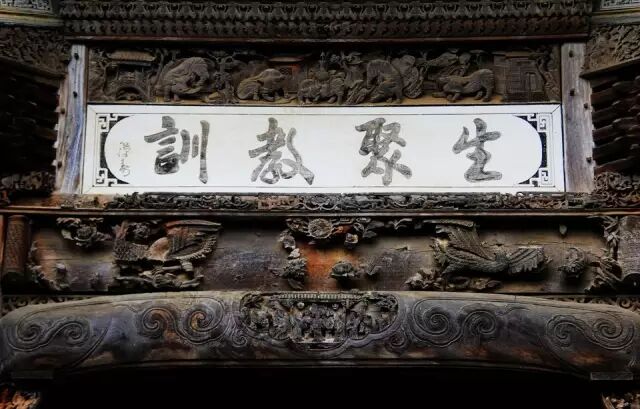 生聚教訓